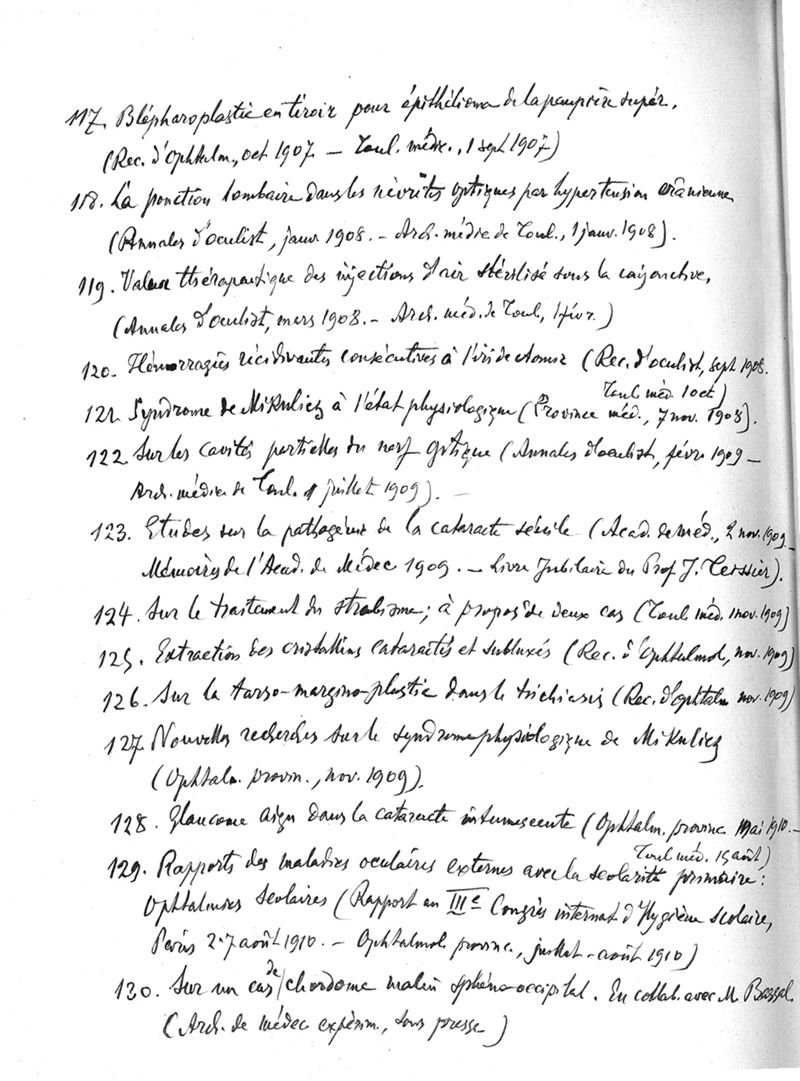 117. Blépharoplastie en tiroir pour épithélioma de la paupière supér.
(Rec. d'Ophtalm., oct 1907. — Toul. médic., 1 sept 1907)
118. La ponction lombaire dans les névrites optiques par hypertension crânienne
(Annales d'oculist, janv 1908. — Arch. médic de Toul., 1 janv. 1908).
119. Valeur thérapeutique des injections d'air stérilisé sous la conjonctive,
(Annales d'oculist, mars 1908. — Arch. méd. de Toul, 1 févr.)
120. Hémorragies récidivantes consécutives à l'iridectomie (Rec. d'oculist, sept 1908.
Toul méd. 1 oct)
121. Syndrome de Mikulicz à l'état physiologique (Province méd., 7 nov. 1908).
122. Sur les cavités partielles du nerf optique (Annales d'oculist, févr 1909 —
Arch. médic de Toul. 1 juillet 1909). —
123. Etudes sur la pathogénie de la cataracte sénile (Acad. de méd., 2 nov. 1909 —
Mémoires de l'Acad. de Médec 1909. — Livre Jubilaire du Prof J. Teissier).
124. Sur le traitement du strabisme; à propos de deux cas (Toul méd. 1 nov. 1909)
125. Extraction des cristallins cataractés et subluxés (Rec. d'Ophtalmol, nov. 1909)
126. Sur la tarso-margino-plastie dans le trichiasis (Rec. d'Ophtalm nov. 1909)
127. Nouvelles recherches sur le syndrome physiologique de Mikulicz
(Ophtalm. provin., nov. 1909).
128. Glaucome aigu dans la cataracte intumescente (Ophtalm. provinc. Mai 1910. —
Toul méd. 15 août)
129. Rapports des maladies oculaires externes avec la scolarité primaire :
Ophtalmies scolaires (Rapport au IIIe Congrès internat d'Hygiène scolaire,
Paris 2-7 août 1910. — Ophtalmol. provinc., juillet-août 1910)
130. Sur un cas de chordome malin sphéno-occipital. En collab. avec M. Bassal.
(Arch. de médec expérim., sous presse)